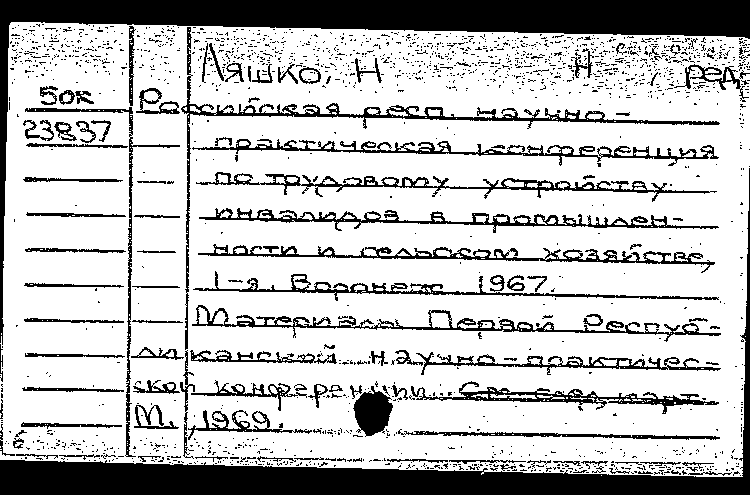 Ляшко, Н Н , ред.
50к Российская респ. научно-
23837 практическая конференция
по трудовому устройству
инвалидов в промышлен-
ности и сельском хозяйстве,
1-я. Воронеж. 1967.
Материалы Первой Респуб-
ликанской научно-практичес-
кой конференции. См. след. карт.
М., 1969.